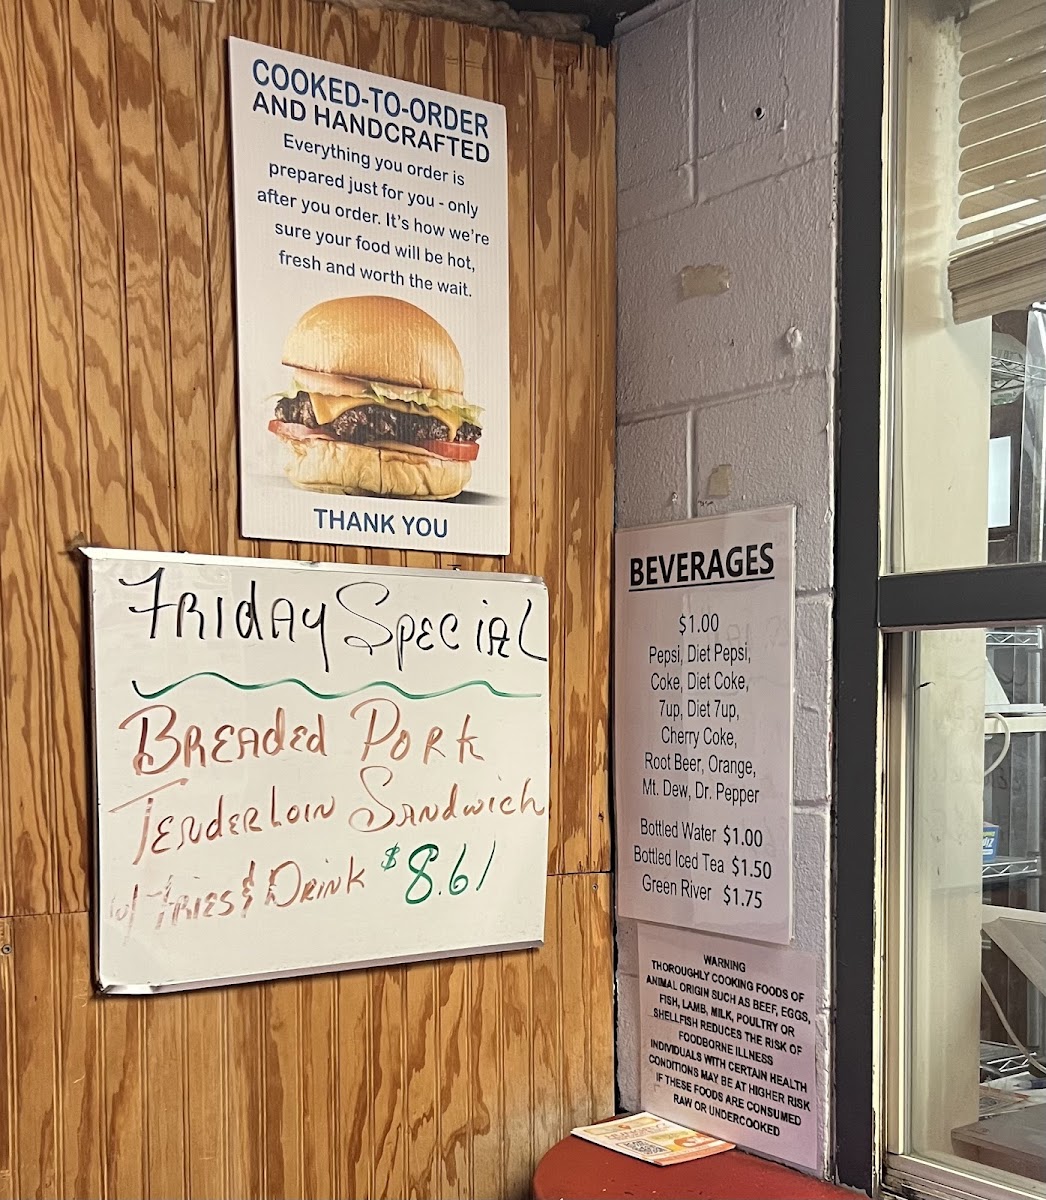 COOKED-TO-ORDER
AND HANDCRAFTED
Everything you order is
prepared just for you - only
after you order. It's how we're
sure your food will be hot,
fresh and worth the wait.
THANK YOU
FRIdAY SPECiAL
BREAded PORk
TENderLoiN SANdwich
w/ FRIES & DRiNK $8.61
BEVERAGES
$1.00
Pepsi, Diet Pepsi,
Coke, Diet Coke,
7up, Diet 7up,
Cherry Coke,
Root Beer, Orange,
Mt. Dew, Dr. Pepper
Bottled Water $1.00
Bottled Iced Tea $1.50
Green River $1.75
WARNING
THOROUGHLY COOKING FOODS OF
ANIMAL ORIGIN SUCH AS BEEF, EGGS,
FISH, LAMB, MILK, POULTRY OR
SHELLFISH REDUCES THE RISK OF
FOODBORNE ILLNESS
INDIVIDUALS WITH CERTAIN HEALTH
CONDITIONS MAY BE AT HIGHER RISK
IF THESE FOODS ARE CONSUMED
RAW OR UNDERCOOKED